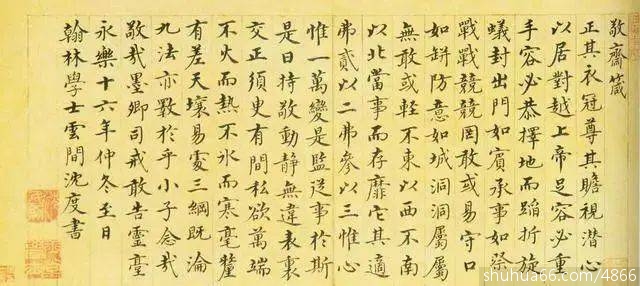 敬齋箴
正其衣冠尊其瞻視潛心
以居對越上帝足容必重
手容必恭擇地而蹈折旋
蟻封出門如賓承事如祭
戰戰兢兢罔敢或易守口
如缾防意如城洞洞屬屬
無敢或輕不東以西不南
以北當事而存靡它其適
弗貳以二弗參以三惟心
惟一萬變是監從事於斯
是曰持敬動靜無違表裏
交正須臾有間私欲萬端
不火而熱不氷而寒毫釐
有差天壤易處三綱既淪
九法亦斁於乎小子念哉
敬哉墨卿司戒敢告靈臺
永樂十六年仲冬至日
翰林學士雲間沈度書
shuhua66.com/4866